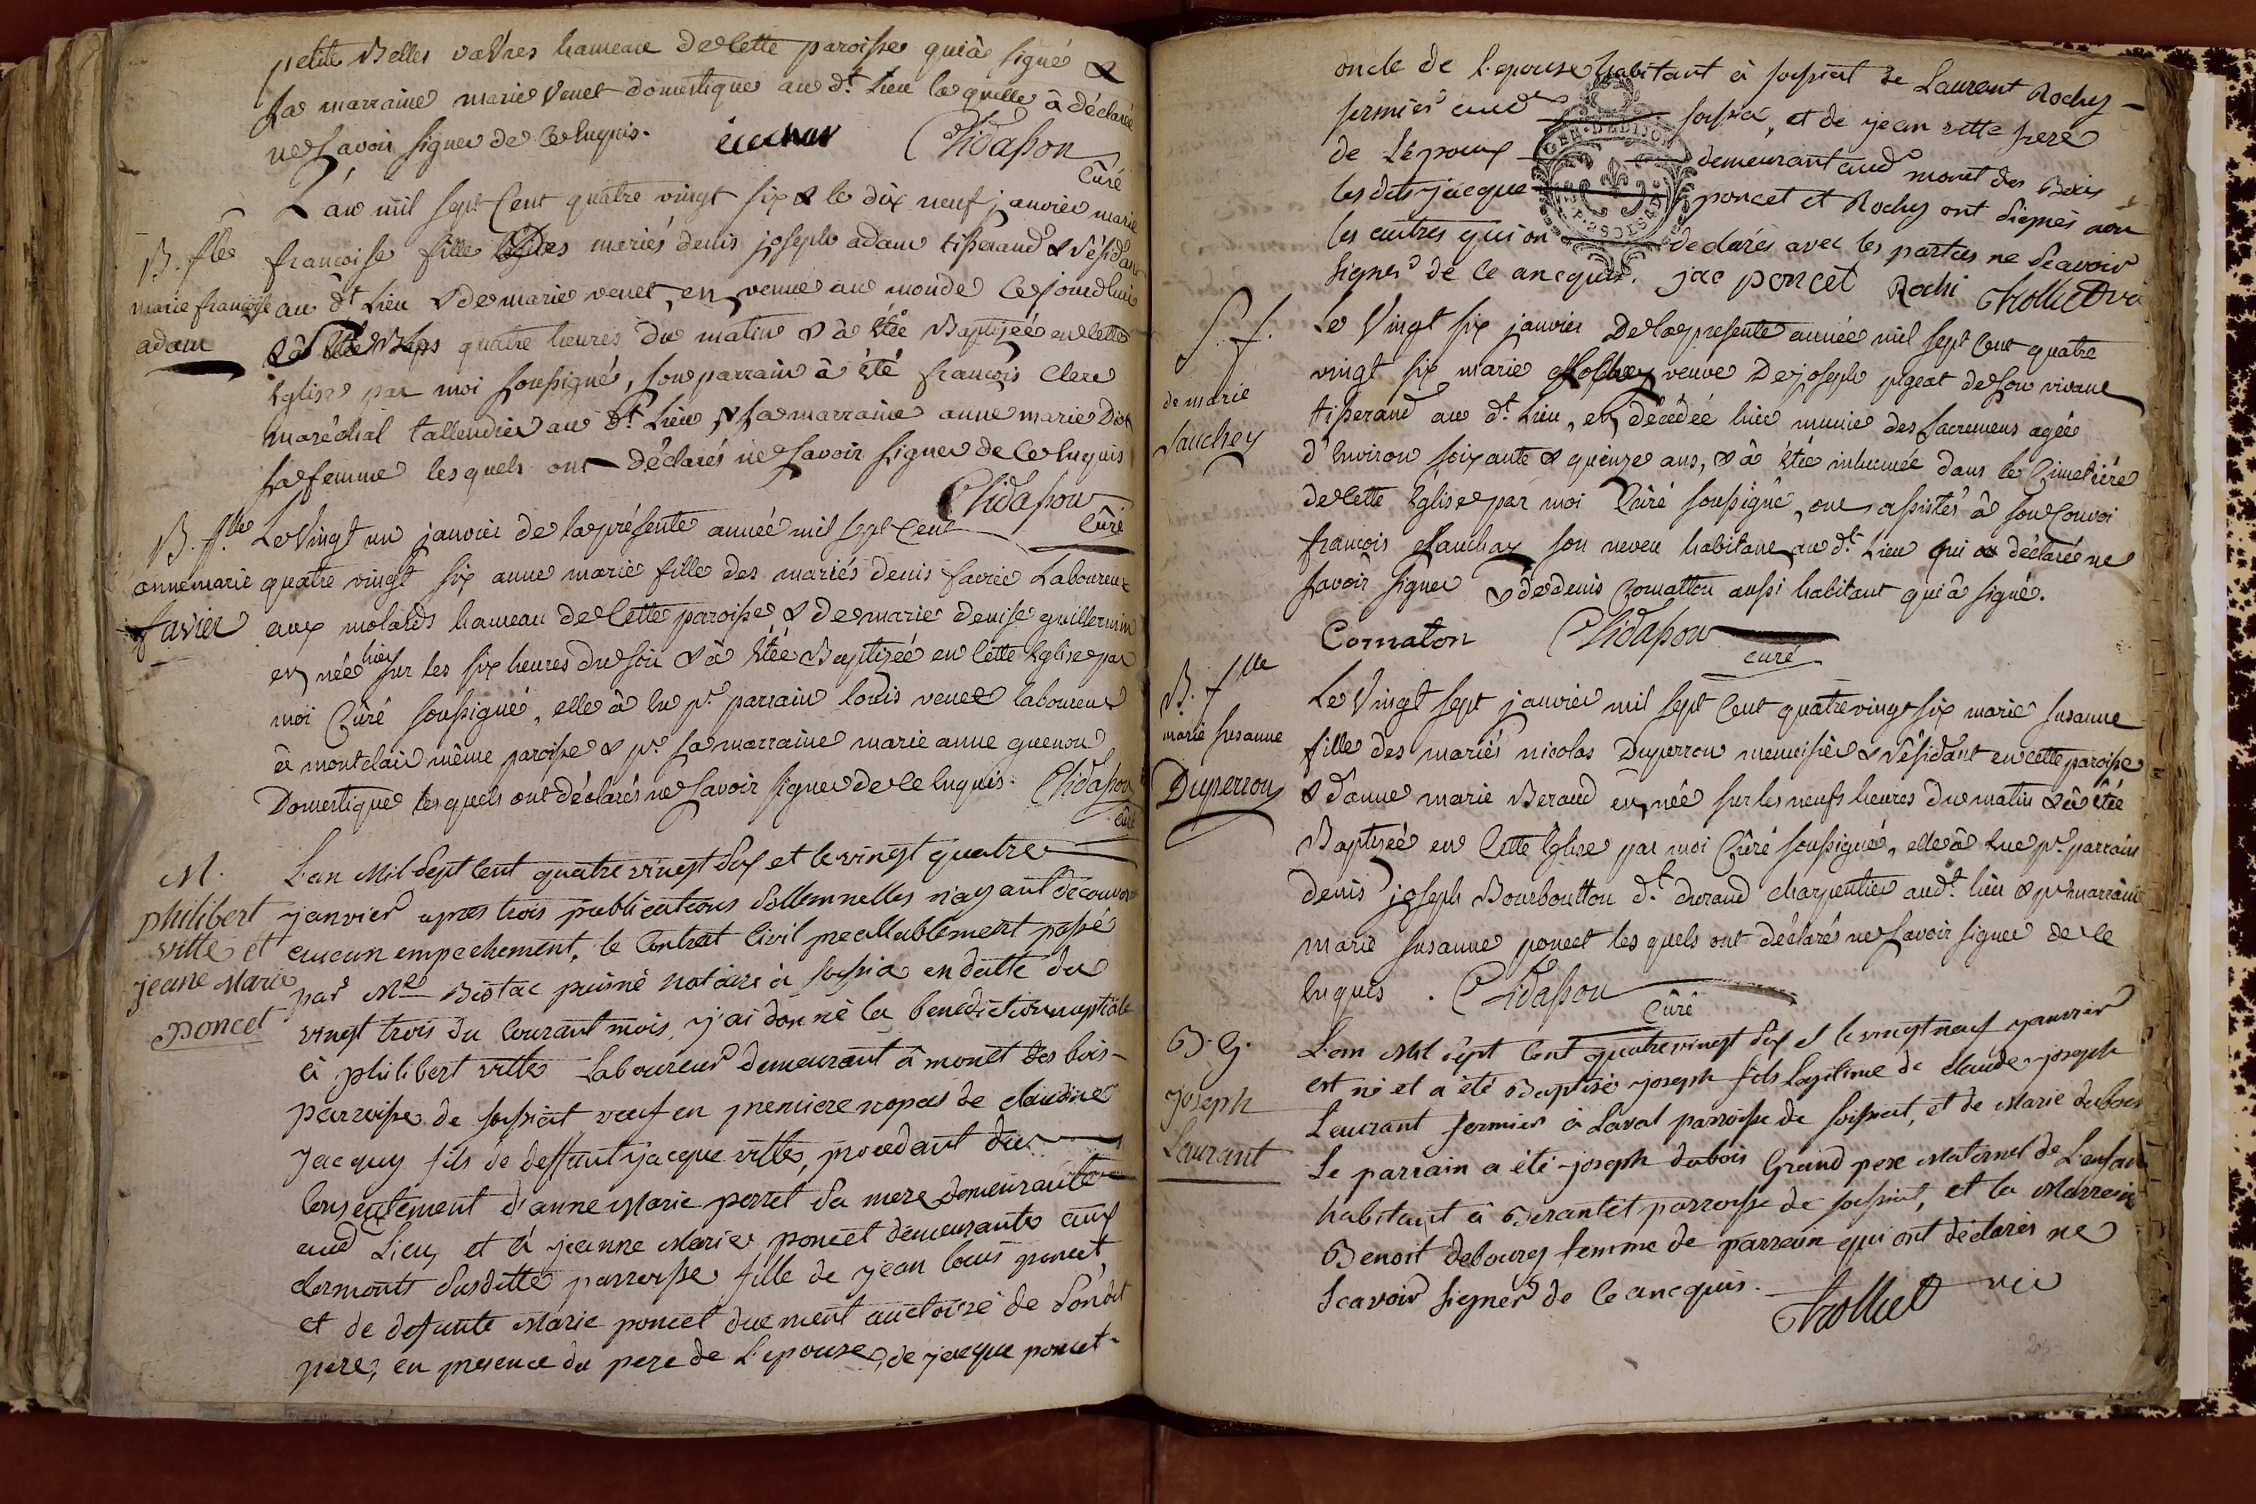 petite Belles vaÊvres hameau de Cette paroisse qui à signé &
sa marraine marie Venet domestique au d.t Lieu laquelle à déclaré
ne savoir signer de Ce Enquis.
Chidasson
Cûré
L'an mil sept Cent quatre vingt six & le dix neuf janvier marie
B. flle
francoise fille des mariés denis joseph adam tisserand & Résidant
marie francoise
au d.t Lieu & de marie venet, en venue au monde Cejourdhui
adam
quatre heures du matin & à Etée Baptizée en Cette
Eglise par moi soussigné, son parrain à été françois Clere
maréchal tallendier au d.t Lieu & sa marraine anne marie
sa femme lesquels ont déclarés ne savoir signer de Ce Enquis
Chidasson
Cûré
B. flle
Le Vingt un janvier de la présente année mil sept Cent
annemarie
quatre vingt six anne marie fille des mariés denis favier Laboureur
favier
aux molards hameau de Cette paroisse & de marie denise guillermin
en née hier sur les six heures du soir & à Etée Baptizée en Cette Eglise par
moi Cûré soussigné, elle à Eu p.r parrain louis venet laboureur
à montclair même paroisse & p.r sa marraine marie anne guenon
Domestique lesquels ont déclarés ne savoir signer de Ce Enquis. Chidasson
Cûré
M.
L'an Mil Sept Cent quatre vingt Six et le vingt quatre
philibert
janvier apres trois publications Sollemnelles n'ayant decouvert
vitte et
aucun empechement, le Contrat Civil preallablement passé
jeanne Marie
par Me puiné notaire à en datte du
poncet
vingt trois du Courant mois, j'ai donné la benediction nuptiale
à philibert vitte Laboureur demeurant à monet des bois
parroisse de veuf en premiere nopces de claudine
Jacquy fils de deffunt jacque vitte, procedant du
Consentement d'anne Marie perret sa mere demeurante
aud Lieu, et à jeanne Marie poncet demeurante aux
clermonts susditte parroisse fille de jean louis poncet
et de defunte Marie poncet duement auctorisé de Sondit
pere, en presence du pere de L'epouse, de jacque poncet
oncle de L'epouse habitant à de Laurent Rochy
fermier aud et de jean vitte frere
de L'epoux demeurant aud monet des Bois
les dits jacque poncet et Rochy ont signés non
les autres qui on declarés avec les parties ne Scavoir
signer de Ce ancquis. jac poncet Rochi
S. f.
Le Vingt six janvier De la presente année mil sept Cent quatre
vingt six marie veuve De joseph pigeat de son vivant
de marie
tisserand au d.t Lieu, en décédée hier munie des Sacremens agée
Janchey
d'Environ soixante & quinze ans, & à Etée inhumée dans le Cimetière
de Cette Eglise par moi Cûré soussigné, ont assistés à son Convoi
françois son neveu habitant au d.t Lieu qui a déclarée ne
savoir signer & de denis Comatton aussi habitant qui à signé.
Cornaton Chidasson
curé
B. flle
Le Vingt sept janvier mil sept Cent quatre vingt six marie susanne
marie susanne
fille des mariés nicolas Duperron menuisier & Résidant en cette paroisse
Duperron
& d'anne marie Beraud en née sur les neufs heures du matin & à êtée
Baptizée en Cette Eglise par moi Cûré soussigné, elle à Eue p.r parrain
denis joseph Bourboutton d.t durand charpentier au d.t lieu & p.r marraine
marie susanne poncet lesquels ont déclarés ne savoir signer de Ce
Enquis. Chidasson
Cûré
B. G.
L'an Mil Sept Cent quatre vingt Six et le vingt neuf janvier
est né et a été Baptisé joseph fils legitime de claude joseph
joseph
Laurant fermier à Laval parroisse de et de Marie dubois
Laurant
Le parrain a été joseph dubois Grand pere Maternel de L'enfan
habitant à parroisse de et la Marreine
Benoit femme de parrein qui ont déclarés ne
Scavoir signer de Ce ancquis.